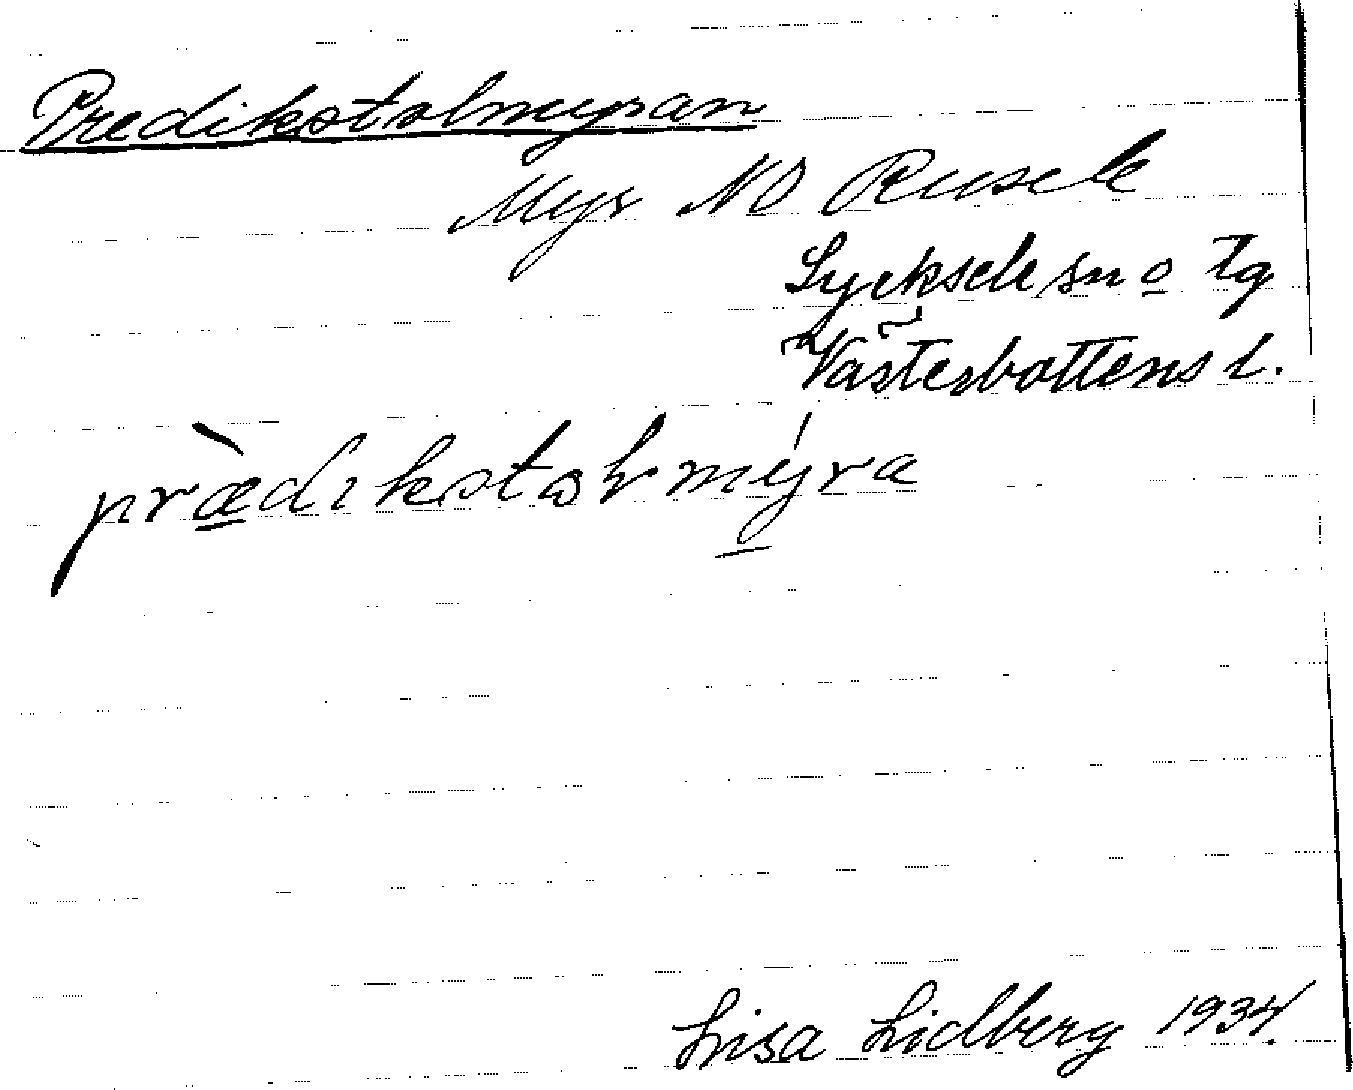 Predikstolmyran
Myr NO Rusele
Lycksele sn o tg
Västerbottens l.
prædikstolsmýra
Lisa Lidberg 1934.